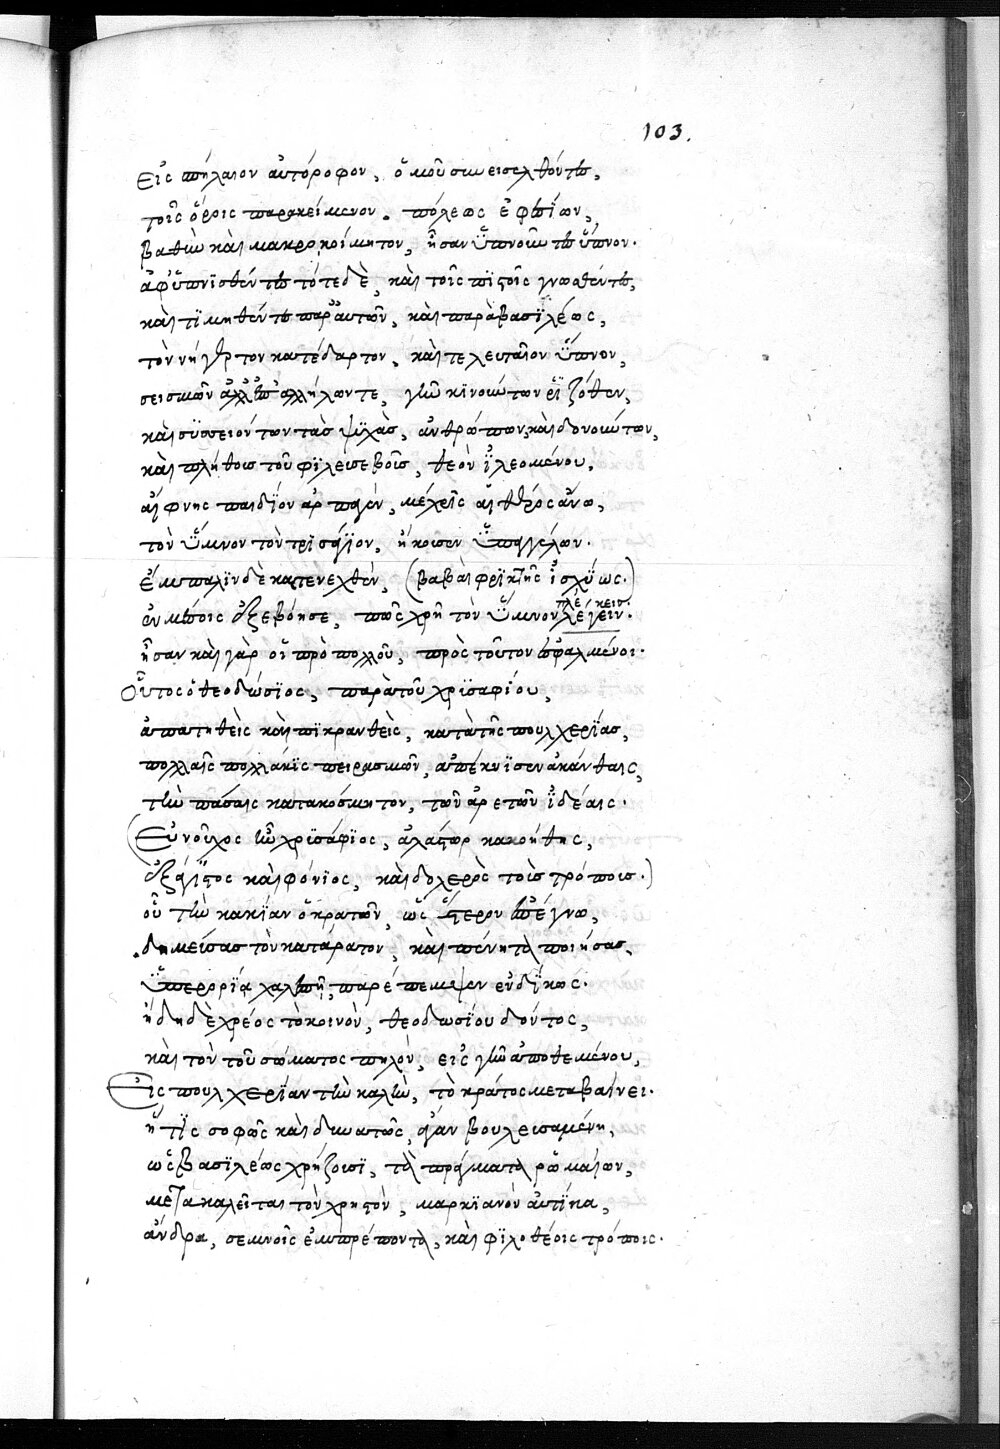 103.
εἰς σπήλαιον αὐτόροφον, ὁμοῦ συνεισελθόντες,
τοῖς ὄροις παρακείμενον. πόλεως ἐφεσίων,
βαθὺν καὶ μακροκοίμητον, ἦσαν ὑπνοῦντες ὕπνον.
ἀφυπνισθέντες τότε δὲ, καὶ τοῖς πϊστοῖς γνωσθέντες,
καὶ τϊμηθέντες παρ' αὐτῶν, καὶ παρὰ βασϊλέως,
τὸν νήγρετον κατέδαρτον, καὶ τελευταῖον ὕπνον,
σεισμῶν ἀλλεπαλλήλων τε, γῆν κϊνούντων ῥϊζόθεν,
καὶ συσσειόντων τὰς ψϋχὰς, ἀνθρώπων, καὶ δονούντων,
καὶ πλήθους τοῦ φϊλευσεβοῦς, θεὸν ἱλεουμένου,
αἴφνης παιδίον ἁρπαγὲν, μέχρϊς αἰθέρος ἄνω,
τὸν ὕμνον τὸν τρϊσάγϊον, ἤκουσεν ὑπ' ἀγγέλων.
ἔμπαλϊν δὲ κατενεχθὲν, (βαβαὶ φρϊκτῆς ἰσχύως.)
ἐν μέσοις ἐξεβόησε, πῶς χρὴ τὸν ὕμνον λέγειν.
πλέκειν.
ἦσαν καὶ γὰρ οἱ πρὸ πολλοῦ, πρὸς τοῦτον ἐσφαλμένοι.
Οὗτος ὁ θεοδώσϊος, παρὰ τοῦ χρϋσαφίου,
ἀπατηθεὶς καὶ πϊκρανθεὶς, κατὰ τῆς πουλχερίας,
πολλαῖς πολλάκϊς πειρασμῶν, ἀπέκνϊσεν ἀκάνθαις,
τὴν πάσαις κατακόσμητον, τῶν ἀρετῶν ἰδέαις.
(Εὐνοῦχος ἦν χρϋσάφϊος, ἀλάστωρ κακοήθης,
ἐξάγϊστος καὶ φόνϊος, καὶ δολερὸς τοῖς τρόποις.)
οὗ τὴν κακίαν ὁ κρατῶν, ὡς ὕστερον ἐπέγνω,
δημεύσας τὸν κατάρατον, καὶ πένητα ποιήσας,
ὑπερορία χαλεπῇ, παρέπεμψεν ἐνδίκως.
ἤδη δὲ χρέος τὸ κοινὸν, θεοδωσίου δόντος,
καὶ τὸν τοῦ σώματος πηλὸν, εἰς γῆν ἀποθεμένου,
Εἰς πουλχερίαν τὴν καλὴν, τὸ κράτος μεταβαίνει.
ἥτϊς σοφῶς καὶ δυνατῶς, ἄγαν βουλευσαμένη,
ὡς βασϊλέως χρῄζουσϊ, τὰ πράγματα ῥωμαίων,
μετακαλεῖται τὸν χρηστὸν, μαρκϊανὸν αὐτίκα,
ἄνδρα, σεμνοῖς ἐμπρέποντα, καὶ φϊλοθέοις τρόποις.